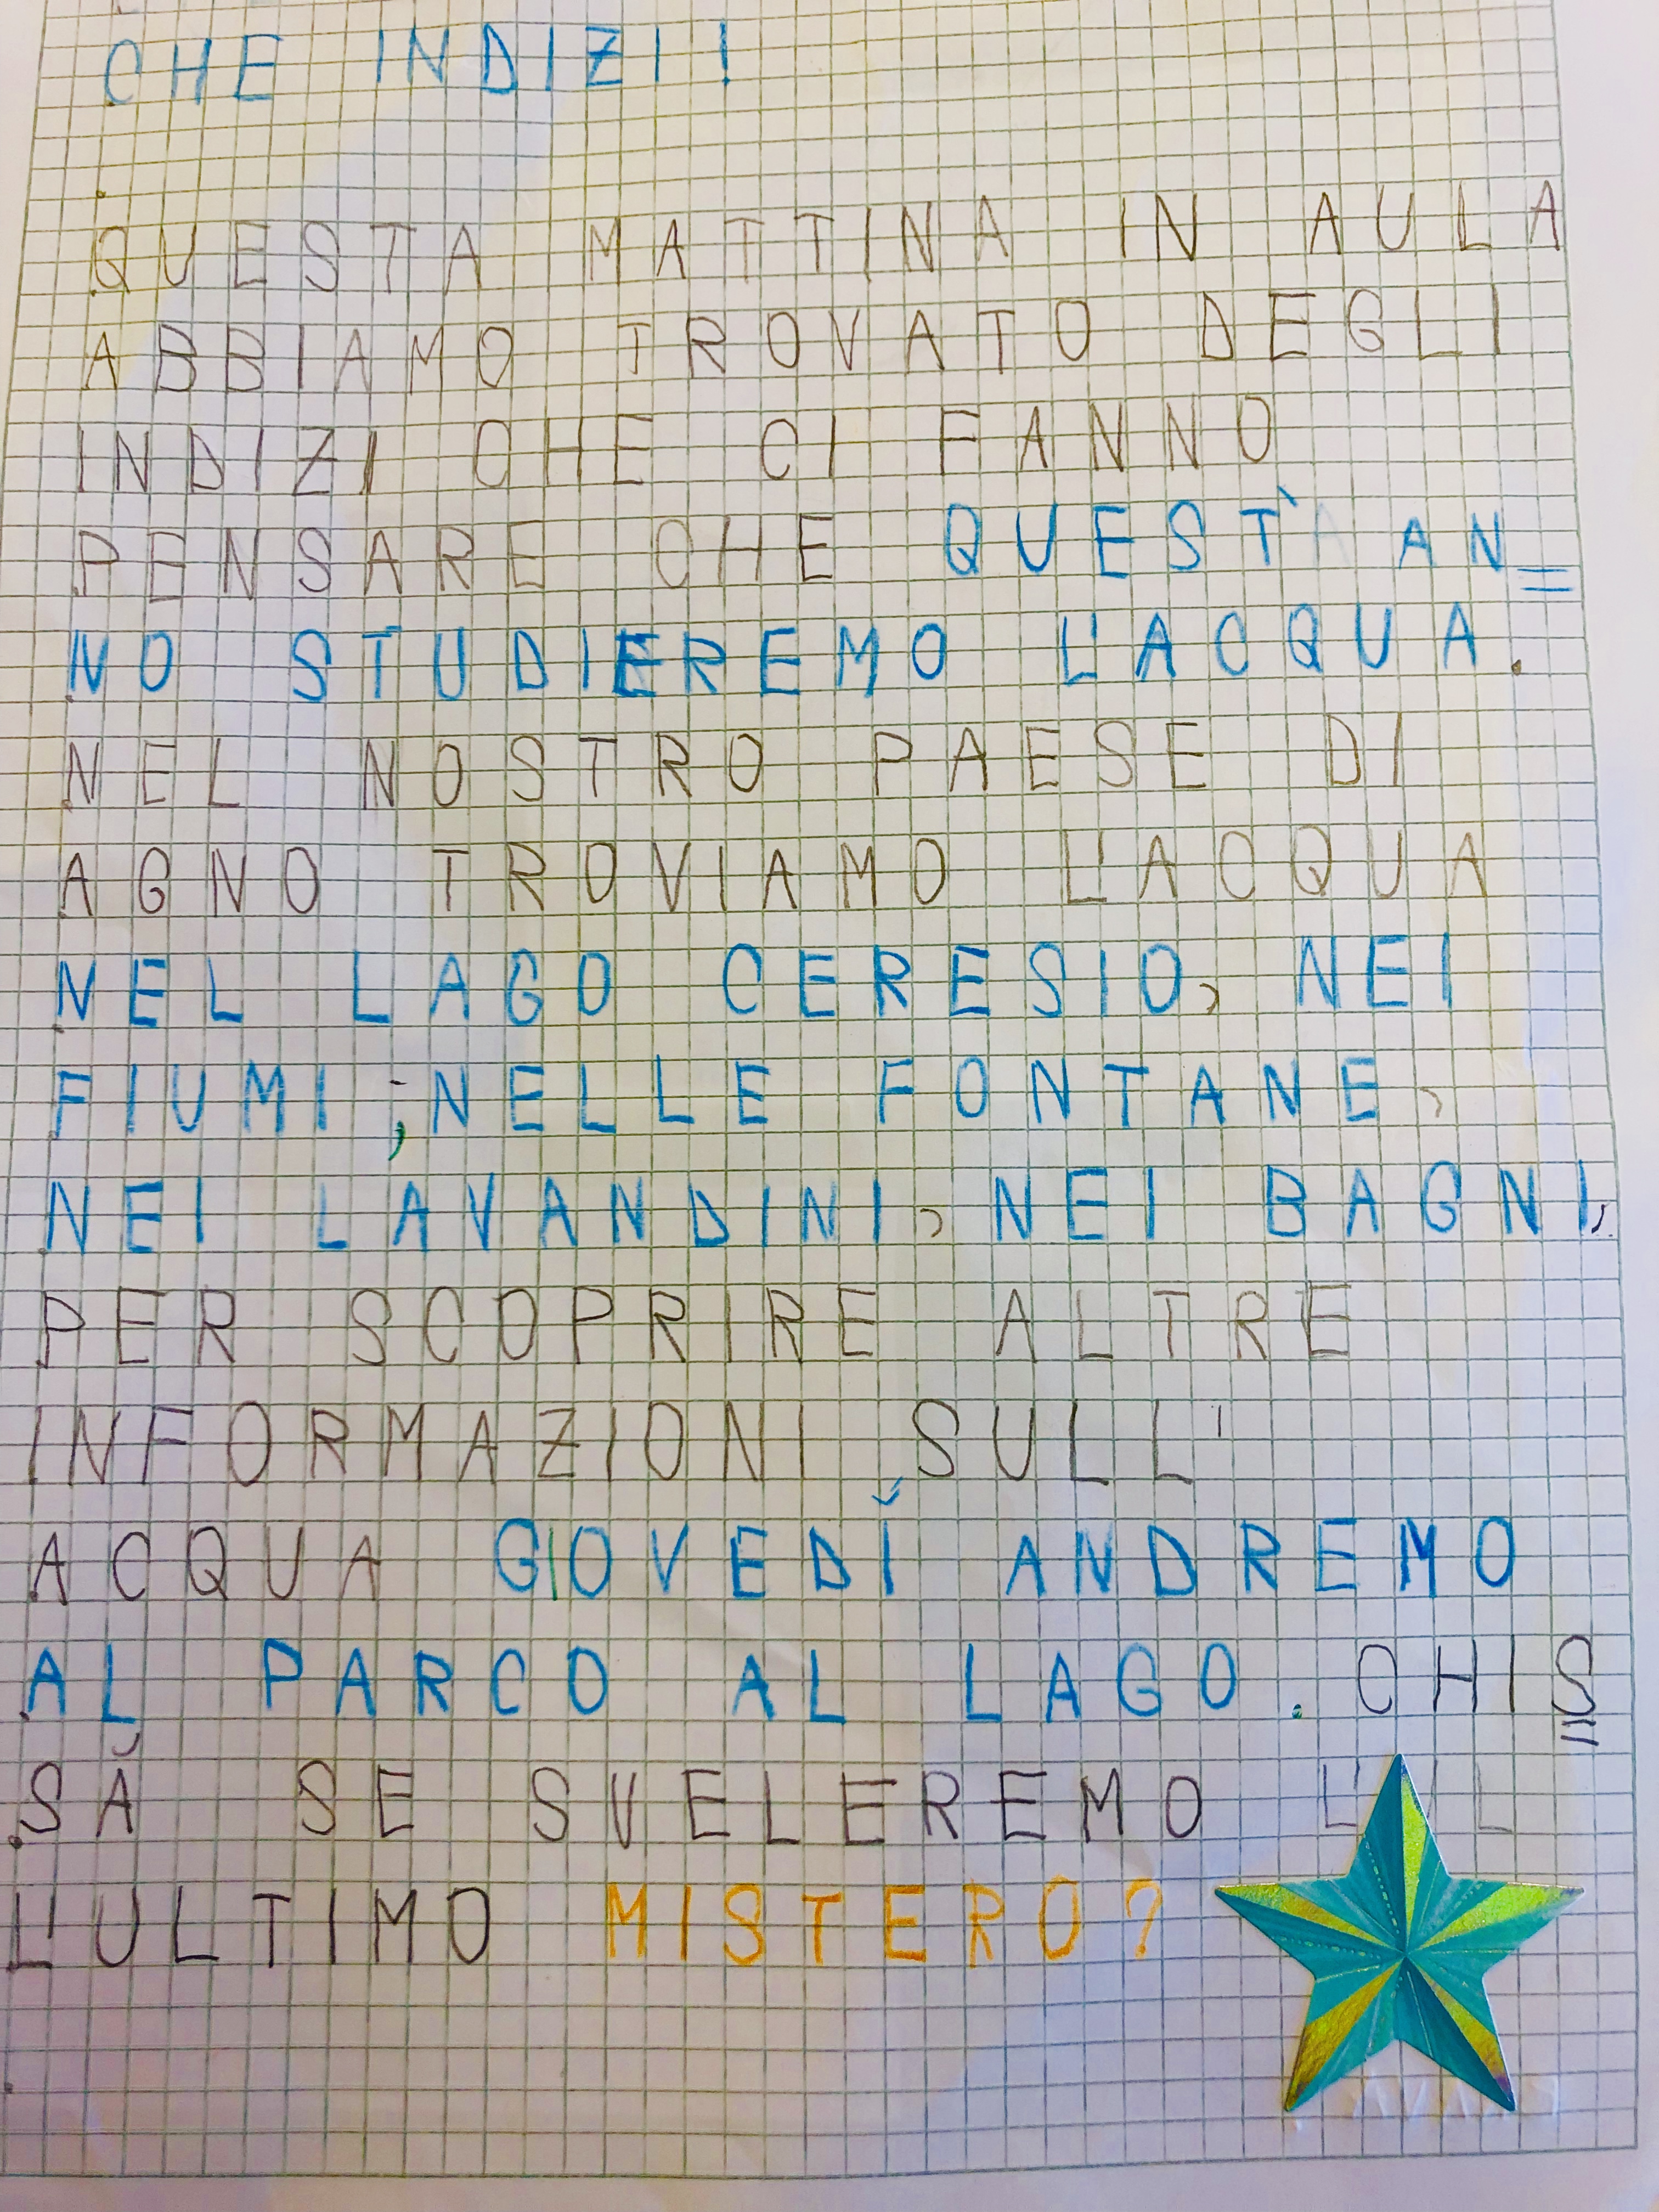 CHE INDIZI!
QUESTA MATTINA IN AULA
ABBIAMO TROVATO DEGLI
INDIZI CHE CI FANNO
PENSARE CHE QUEST' AN=
NO STUDIEREMO L'ACQUA.
NEL NOSTRO PAESE DI
AGNO TROVIAMO L'ACQUA
NEL LAGO CERESIO, NEI
FIUMI, NELLE FONTANE,
NEI LAVANDINI, NEI BAGNI,
PER SCOPRIRE ALTRE
INFORMAZIONI SULL'
ACQUA GIOVEDÌ ANDREMO
AL PARCO AL LAGO. CHIS=
SÀ SE SVELEREMO
L'ULTIMO MISTERO?